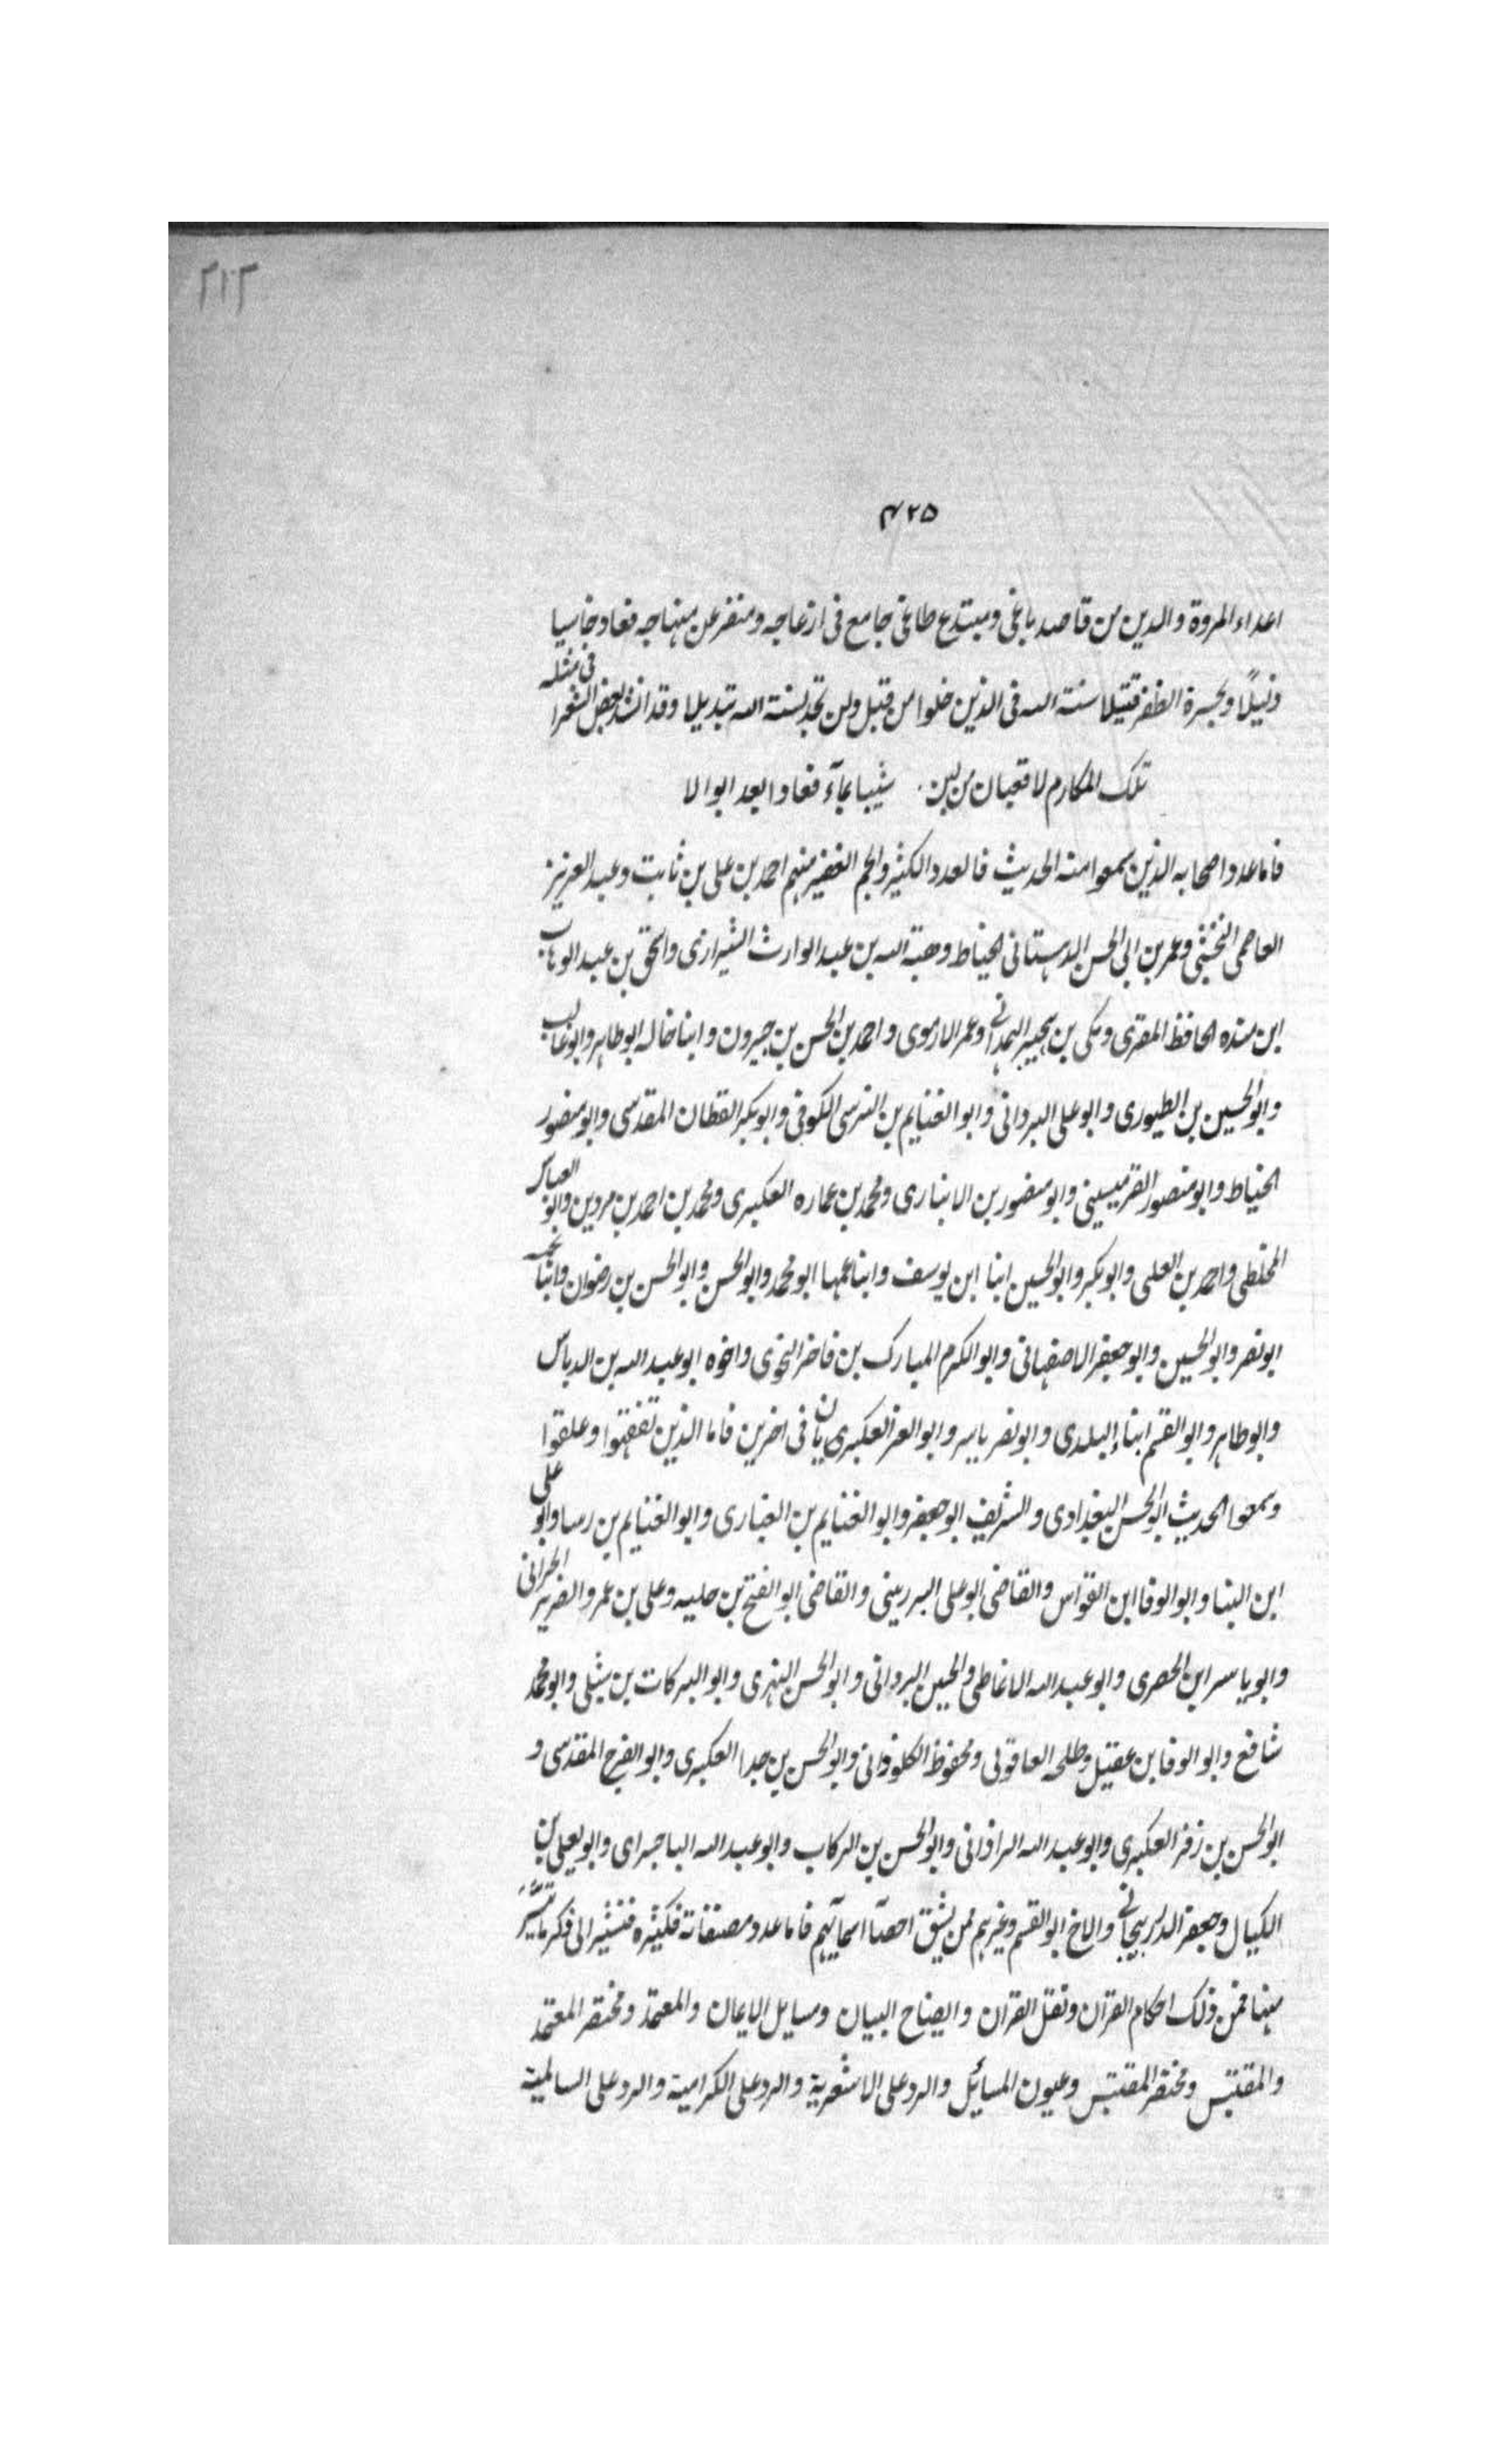 ٢١٢
٤٢٥
اعداء المروة والدين من قاصد باغى ومبتدع طاغى جامع فى ازعاجه ومنفر عن منهاجه فعاد خاسيا
وذليلًا وبحسرة الظفر قتيلا سنة الله فى الذين خلوا من قبل ولن تجد لسنة الله تبديلا وقد انشد بعض الشعرا فى مثله
تلك المكارم لا قعبان من لبن شيبا بمآء فعادا بعد ابوالا
فاما عدد اصحابه الذين سمعوا منه الحديث فالعدد الكثير والجم الغفير منهم احمد بن على بن ثابت وعبد العزيز
العاصمى النخشبى وعمر بن ابى الحسن الدهستانى الخياط وهبة الله بن عبد الوارث الشيرازى واسحق بن عبد الوهاب
ابن منده الحافظ المقرى ومكى بن بجيير الهمدانى وعمر الارموى واحمد بن الحسن بن جيرون وابنا خاله ابو طاهر وابو غالب
وابو الحسين بن الطيورى وابو على البردانى وابو الغنايم بن النرسى الكوفى وابو بكر القطان المقدسى وابو منصور
الخياط وابو منصور القرميسينى وابو منصور بن الانبارى ومحمد بن عماره العكبرى ومحمد بن احمد بن مردين وابو العباس
المخلطى واحمد بن العلى وابو بكر وابو الحسين ابنا ابن يوسف وابنا عمها ابو محمد وابو الحسن وابو الحسن بن رضوان وابنا
ابو نصر وابو الحسين وابو جعفر الاصفهانى وابو الكرم المبارك بن فاخر النحوى واخوه ابو عبد الله بن الدباس
وابو طاهر وابو القسم ابناء البلدى وابو نصر ياسر وابو العز العكبريان فى اخرين فاما الذين تفقهوا وعلقوا
وسمعوا الحديث ابو الحسن البغدادى والشريف ابو جعفر وابو الغنايم بن الغبارى وابو الغنايم بن رسا وابو على
ابن البنا وابو الوفا ابن القواس والقاضى ابو على البرزبينى والقاضى ابو الفتح بن حلبه وعلى بن عمرو الضرير الحرانى
وابو ياسر ابن الحصرى وابو عبد الله الانماطى والحسين البردانى وابو الحسن النهرى وابو البركات بن شبلى وابو محمد
شافع وابو الوفا بن عقيل وطلحه العاقولى ومحفوظ الكلوذانى وابو الحسن بن جدا العكبرى وابو الفرج المقدسى و
ابو الحسن بن زفر العكبرى وابو عبد الله الراذانى وابو الحسن بن الركاب وابو عبد الله الباجراى وابو يعلى بن
الكيال وجعفر الدرزيجانى والاخ ابو القسم وغيرهم ممن يشق احصآ اسمآئهم فاما عدد مصنفاته فكثيره فنشير الى ذكر ما تيسَّر
منها فمن ذلك احكام القران ونقل القران وايضاح البيان ومسايل الايمان والمعتمد ومختصر المعتمد
والمقتبس ومختصر المقتبس وعيون المسائل والرد على الاشعرية والرد على الكرامية والرد على السالمية